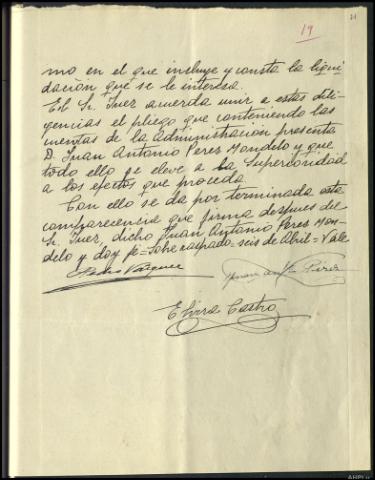 19
mo en el que incluye y consta la liqui
dación que se le interesa.
El Sr. Juez acuerda unir a estas dili-
gencias el pliego que conteniendo las
cuentas de la administración presenta
D. Juan Antonio Perez Mondelo y que
todo ello se eleve a la Superioridad
a los efectos que proceda.
Con ello se da por terminada esta
comparecencia que firma despues del
Sr. Juez, dicho Juan Antonio Peres Mon-
delo y doy fé=Sobre raspado=seis de Abril=Vale
Pedro Vazquez
Juan Antº Pérez
Elvira Castro
AHPLu